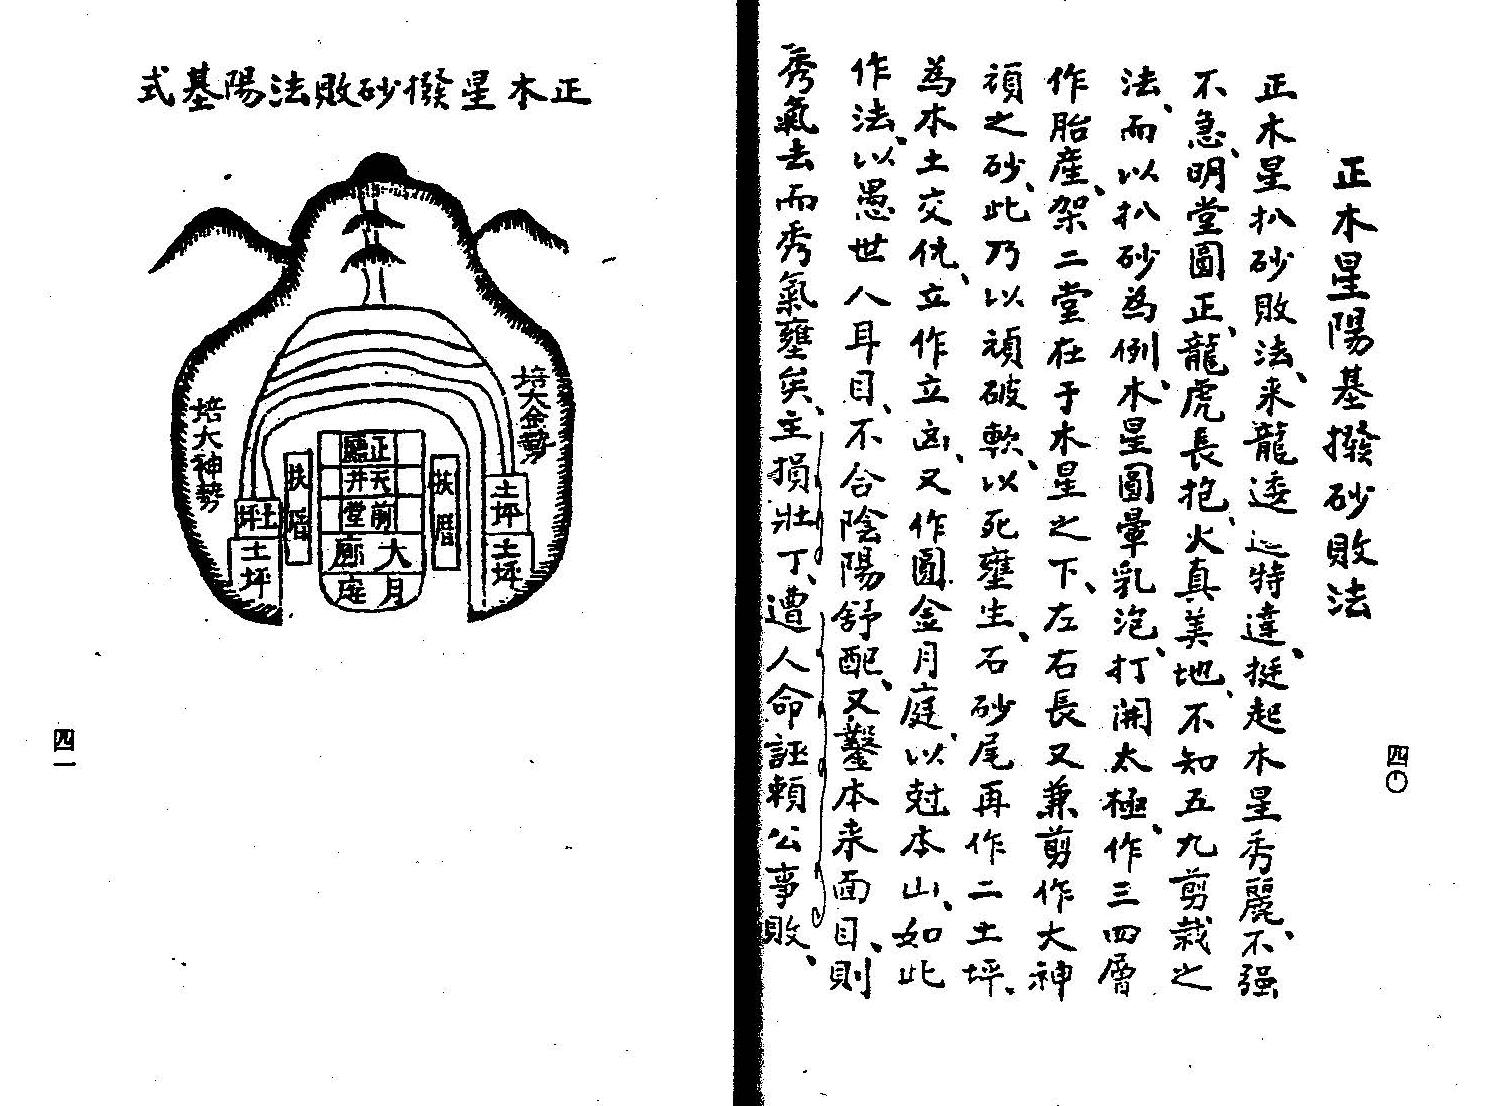 正木星陽基撥砂敗法
正木星扒砂敗法、来龍逶迤特達、挺起木星秀麗、不强
不急、明堂圓正、龍虎長抱、火真美地、不知五九剪裁之
法、而以扒砂為例、木星圓暈乳泡、打開太極、作三四層
作胎產、架二堂在于木星之下、左右長又兼剪作大神
頑之砂、此乃以頑破軟、以死壅生、石砂尾再作二土坪、
為木土交仇、立作立凶、又作圓金月庭、以尅本山、如此
作法、以愚世人耳目、不合陰陽舒配、又鑿本来面目、則
秀氣去而秀氣壅矣、主損壯丁、遭人命誣賴公事敗、
四〇
正木星撥砂敗法陽基式
培大金勢
培大神勢
正廳
天井
前堂
大廊
月庭
扶厝
扶厝
土坪
土坪
土坪
土坪
四一